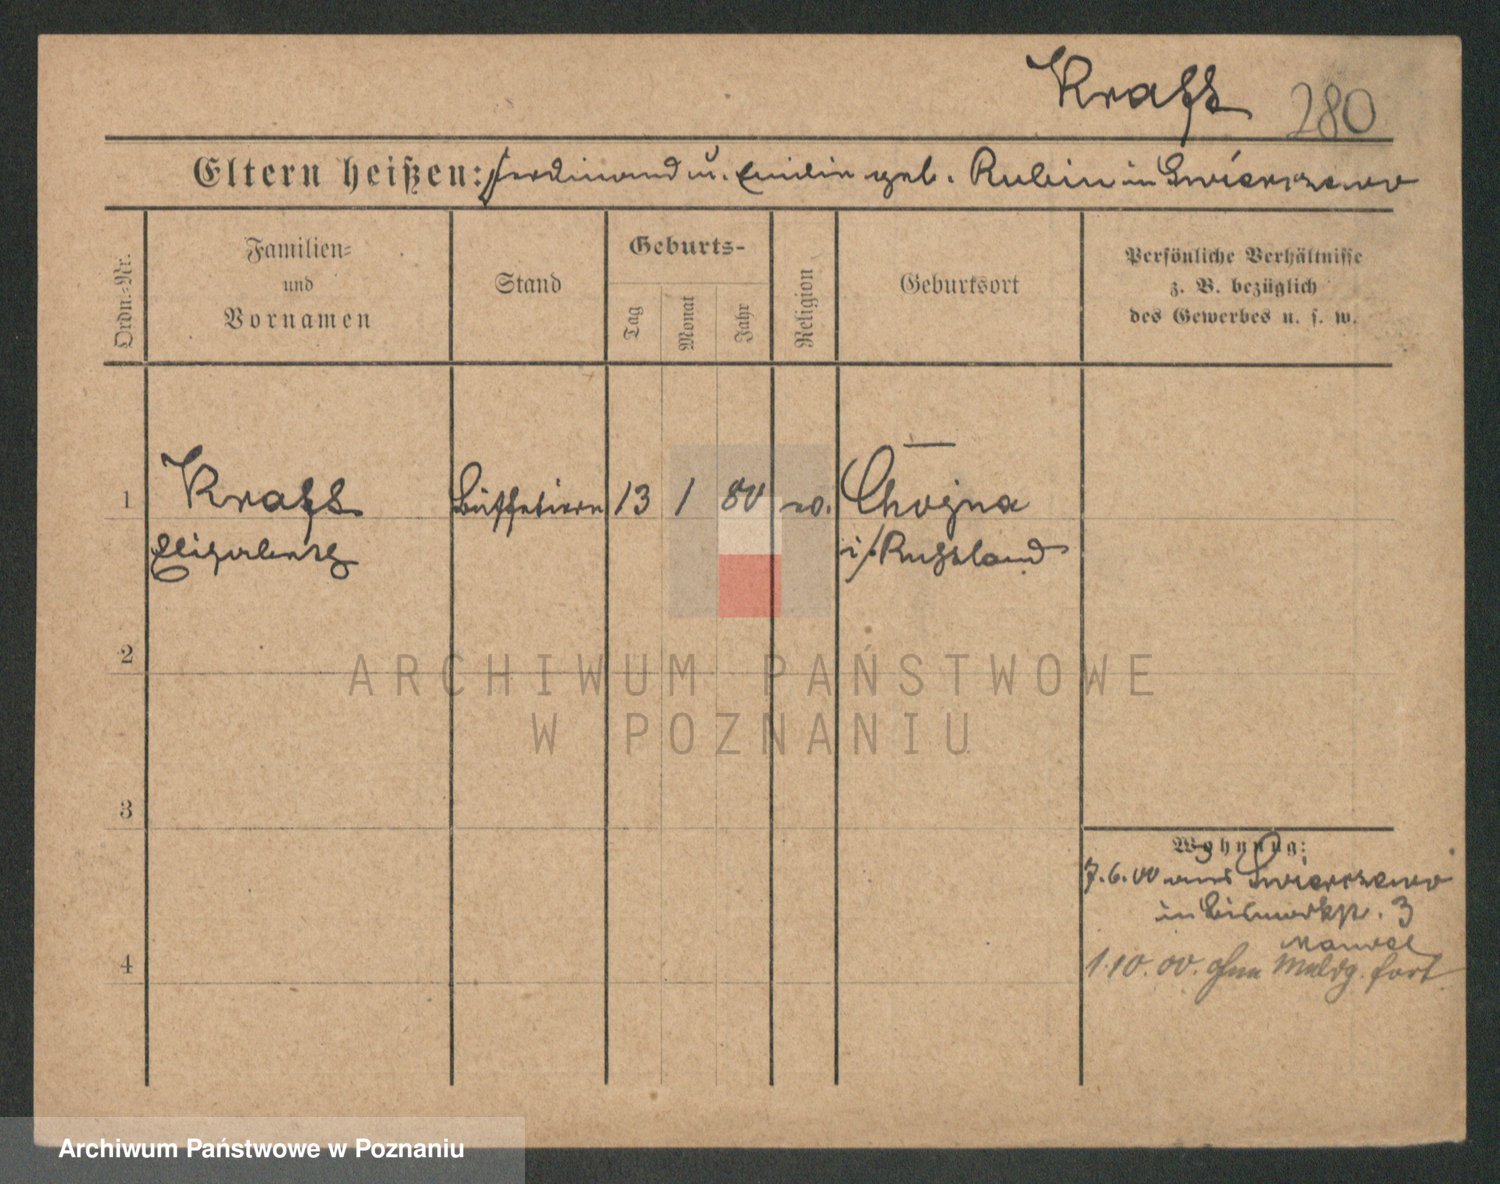 Kraft 280
Eltern heißen: Ferdinand u. Emilie geb. Rubin in Swierszewo
Ordn.-Nr.
Familien-
und
Vornamen
Stand
Geburts-
Tag
Monat
Jahr
Religion
Geburtsort
Persönliche Verhältnisse
z. B. bezüglich
des Gewerbes u. s. w.
1 Kraft Büffetiere 13 1 80 ev. Chojna
Elisabeth i/Russland
2
3
4
Wohnung:
7.6.00 aus Swierszewo
in Bismarkstr. 3
1.10.00. ohne Meldg. fort
ARCHIWUM PAŃSTWOWE
W POZNANIU
Archiwum Państwowe w Poznaniu